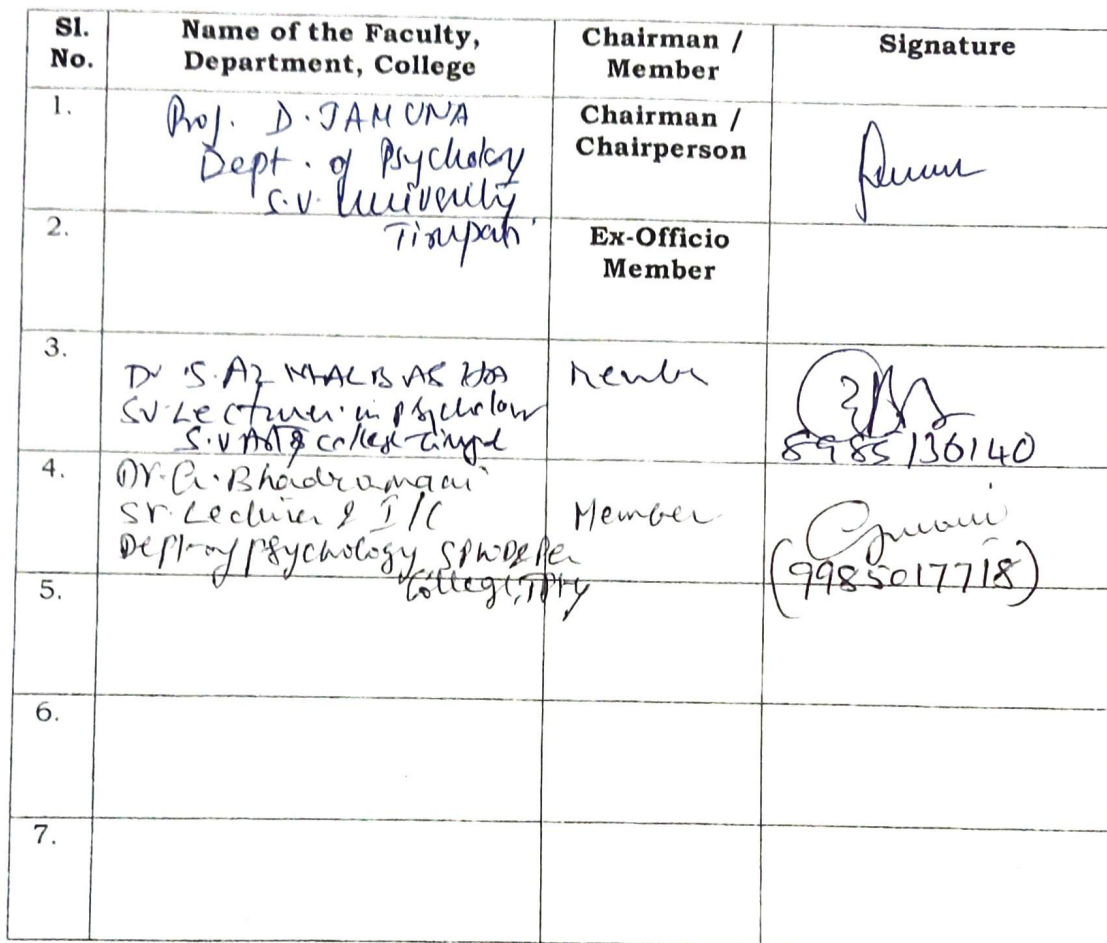 Sl. No.
Name of the Faculty, Department, College
Chairman / Member
Signature
1.
Prof. D. JAMUNA
Dept. of Psychology
S.V. University
Tirupati
Chairman / Chairperson
2.
Ex-Officio Member
3.
Dr. S.
Lecturer in psychology
S.V Arts college
Member
8985136140
4.
Dr. G. Bhadramani
Sr. Lecturer & I/C
Dept of psychology
College, TPTY
Member
(9985017718)
5.
6.
7.